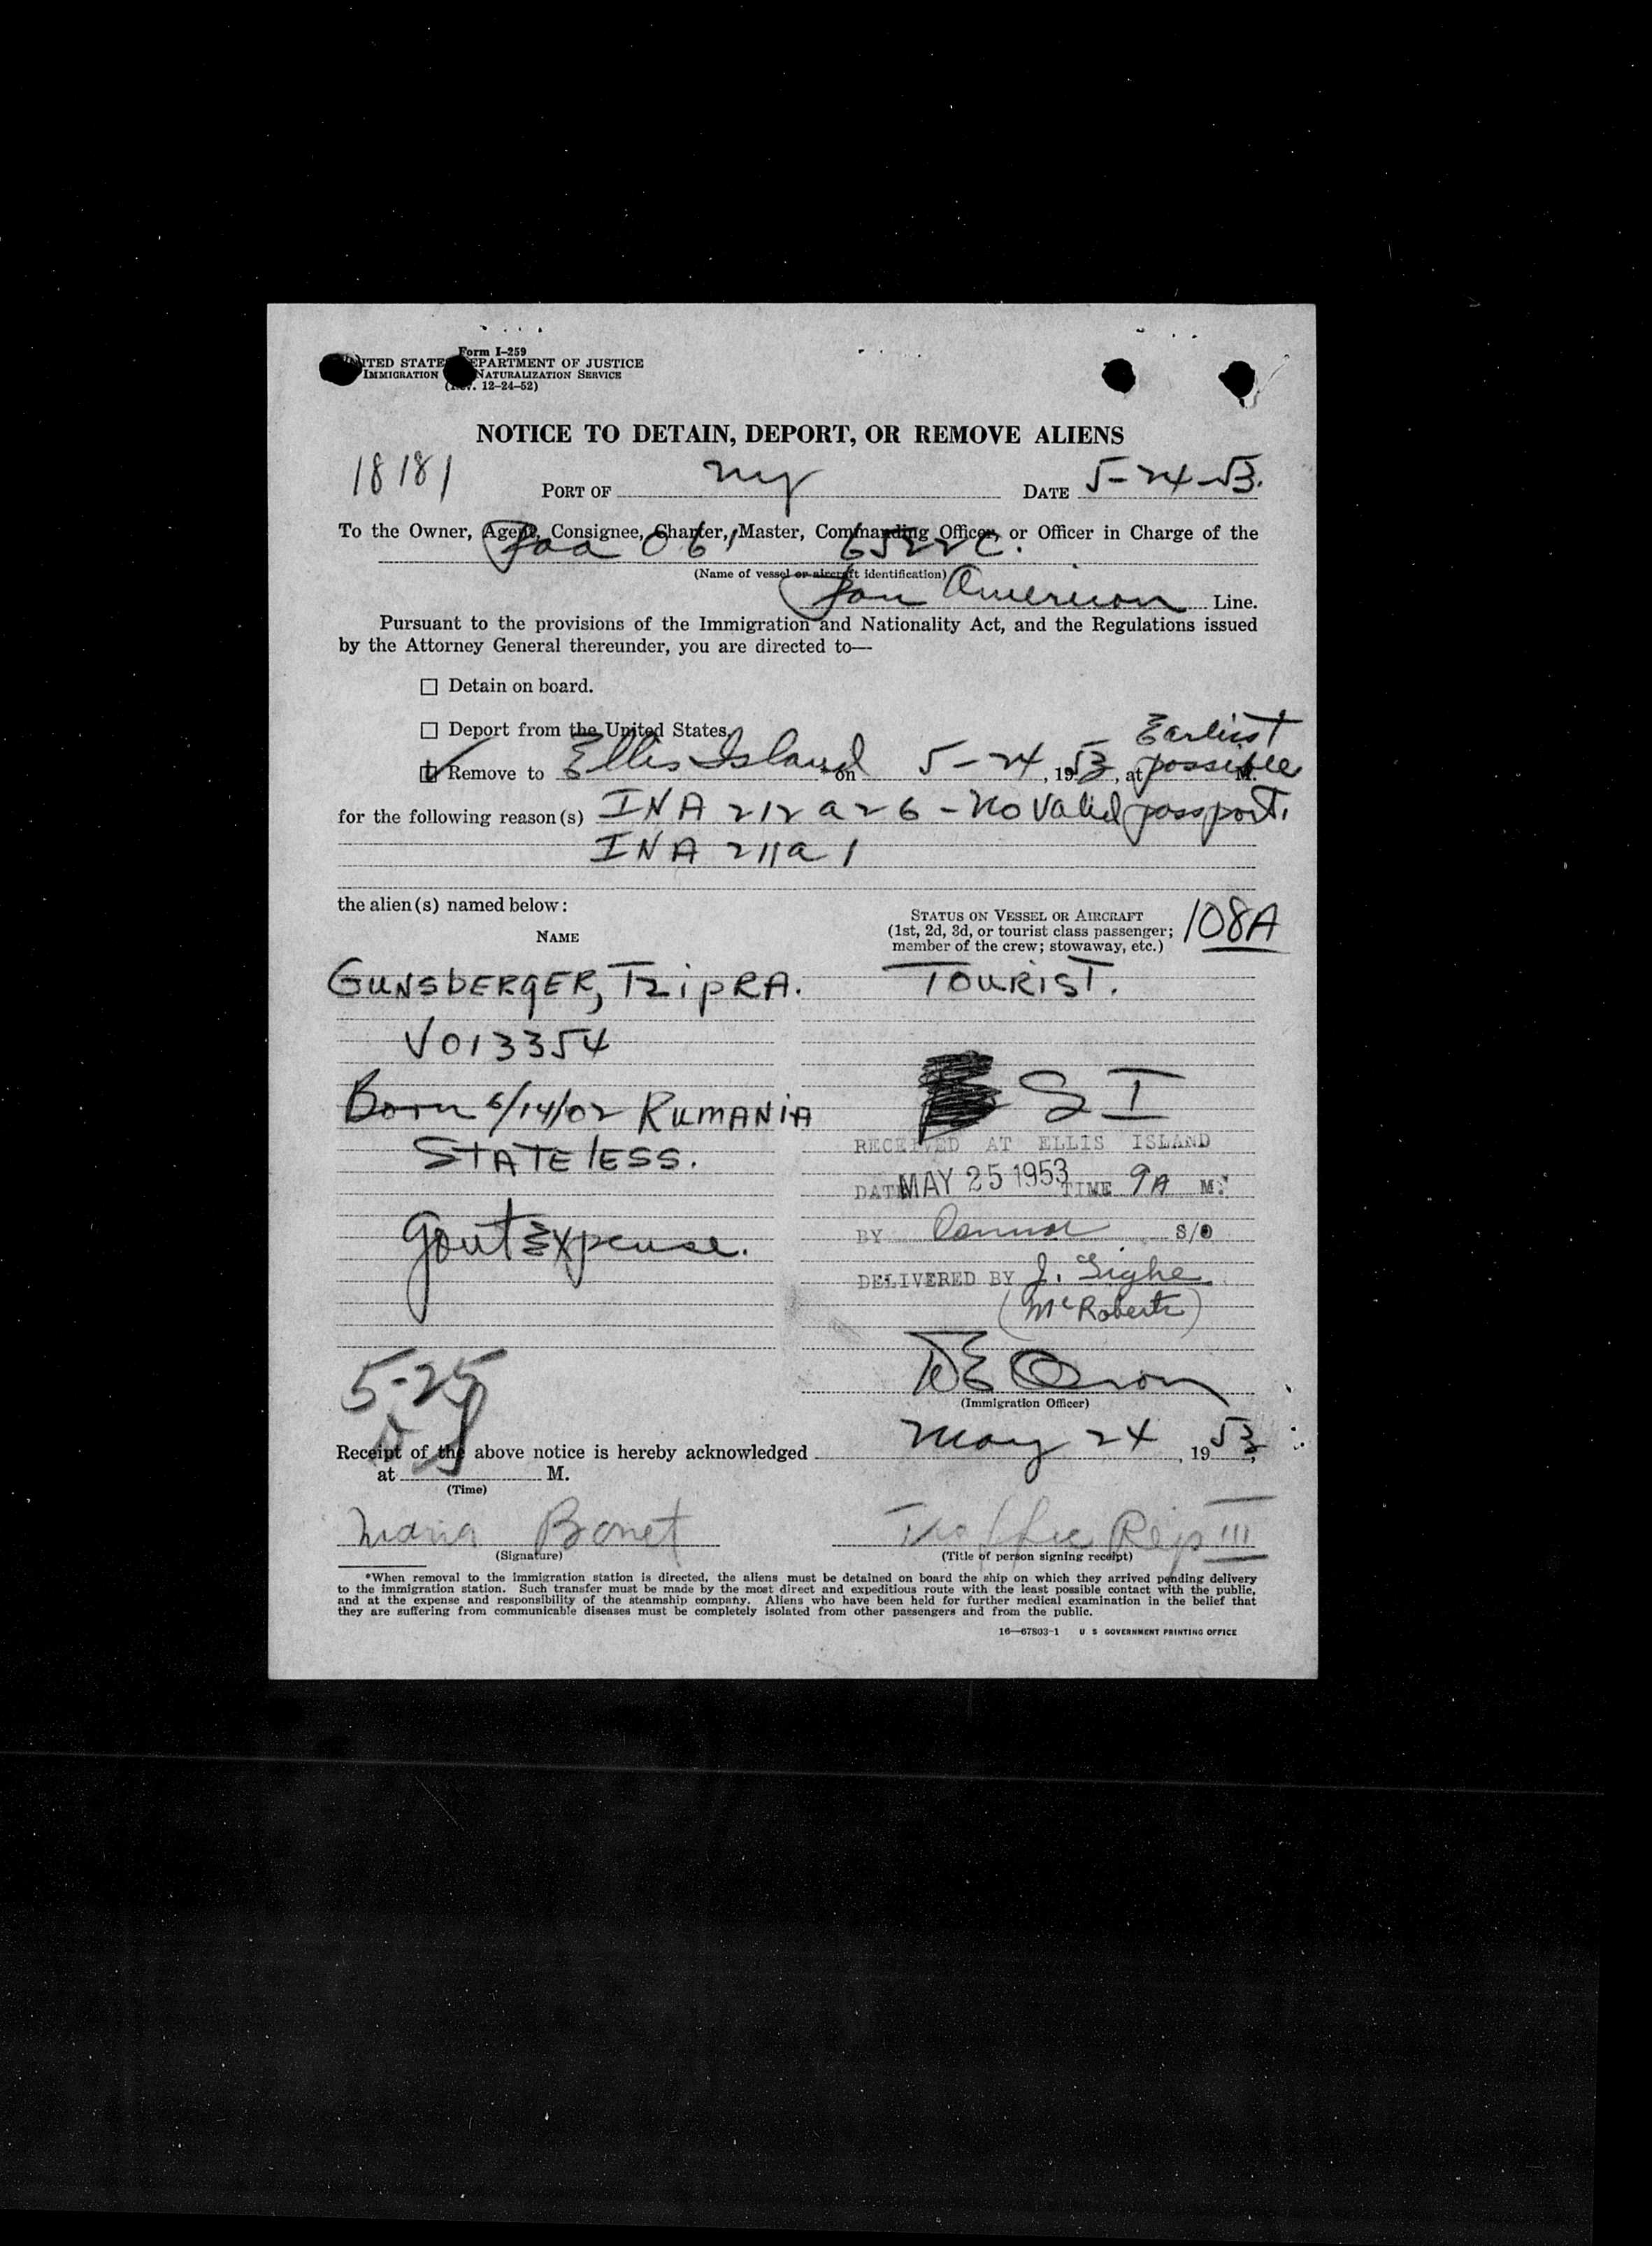 Form I-259
UNITED STATES DEPARTMENT OF JUSTICE
IMMIGRATION NATURALIZATION SERVICE
(Rev. 12-24-52)
NOTICE TO DETAIN, DEPORT, OR REMOVE ALIENS
18181
PORT OF NY DATE 5-24-53.
To the Owner, Agent, Consignee, Charter, Master, Commanding Officer, or Officer in Charge of the
Paa 061 6522C.
(Name of vessel or aircraft identification)
Pan American Line.
Pursuant to the provisions of the Immigration and Nationality Act, and the Regulations issued
by the Attorney General thereunder, you are directed to—
☐ Detain on board.
☐ Deport from the United States.
Earliest
Remove to Ellis Island *on 5-24, 1953, at possible M.
for the following reason(s) INA 212 a 26 - No valid passport.
INA 211a 1
the alien(s) named below:
NAME
STATUS ON VESSEL OR AIRCRAFT
(1st, 2d, 3d, or tourist class passenger;
member of the crew; stowaway, etc.)
108A
GUNSBERGER, TzipRA. TOURIST.
V013354
Born 6/14/02 RUMANIA
SI
STATELESS.
RECEIVED AT ELLIS ISLAND
DATE MAY 25 1953 TIME 9A M.
Govt Expense.
BY S/O
DELIVERED BY J. Tighe
(McRoberts)
(Immigration Officer)
5-25
Receipt of the above notice is hereby acknowledged May 24, 1953,
at M.
(Time)
Maria Bonet Traffic Rep III
(Signature) (Title of person signing receipt)
*When removal to the immigration station is directed, the aliens must be detained on board the ship on which they arrived pending delivery
to the immigration station. Such transfer must be made by the most direct and expeditious route with the least possible contact with the public,
and at the expense and responsibility of the steamship company. Aliens who have been held for further medical examination in the belief that
they are suffering from communicable diseases must be completely isolated from other passengers and from the public.
16—67803-1 U S GOVERNMENT PRINTING OFFICE